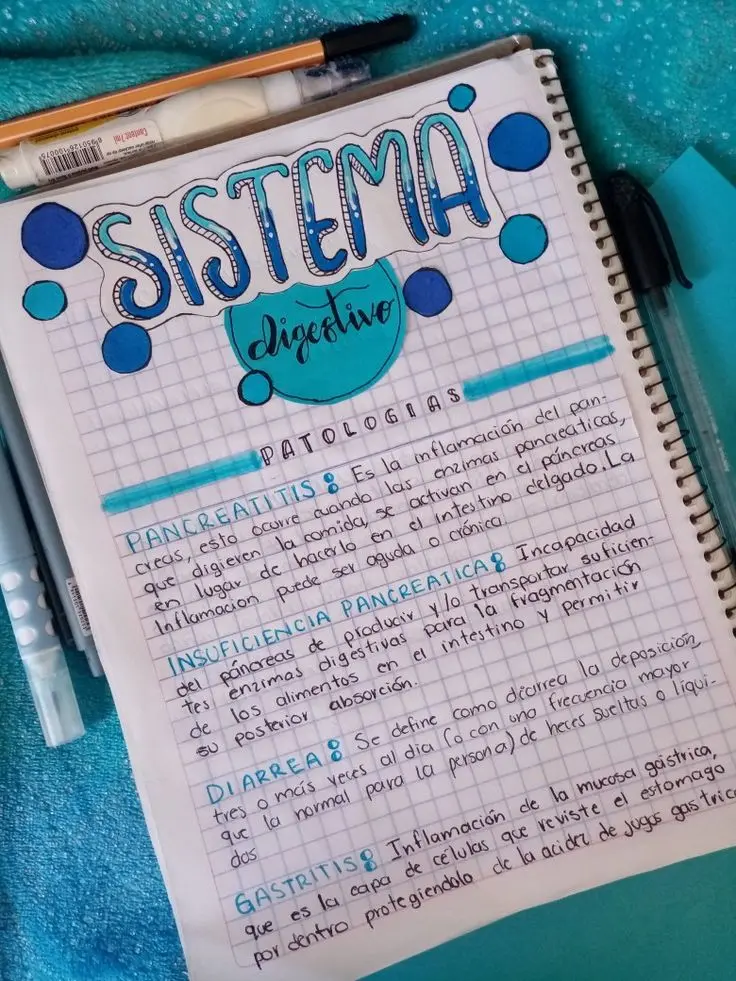 Content: 7ml
SISTEMA
digestivo
PATOLOGIAS
PANCREATITIS: Es la inflamación del pan-
creas, esto ocurre cuando las enzimas pancreáticas,
que digieren la comida, se activan en el páncreas
en lugar de hacerlo en el intestino delgado. La
Inflamacion puede ser aguda o crónica.
INSUFICIENCIA PANCREATICA: Incapacidad
del páncreas de producir y/o transportar suficien-
tes enzimas digestivas para la fragmentación
de los alimentos en el intestino y permitir
su posterior absorción.
DIARREA: Se define como diarrea la deposición,
tres o más veces al dia (o con una frecuencia mayor
que la normal para la persona) de heces sueltas o liqui-
dos
GASTRITIS: Inflamación de la mucosa gástrica,
que es la capa de células que reviste el estomago
por dentro protegiendolo de la acidez de jugos gastric